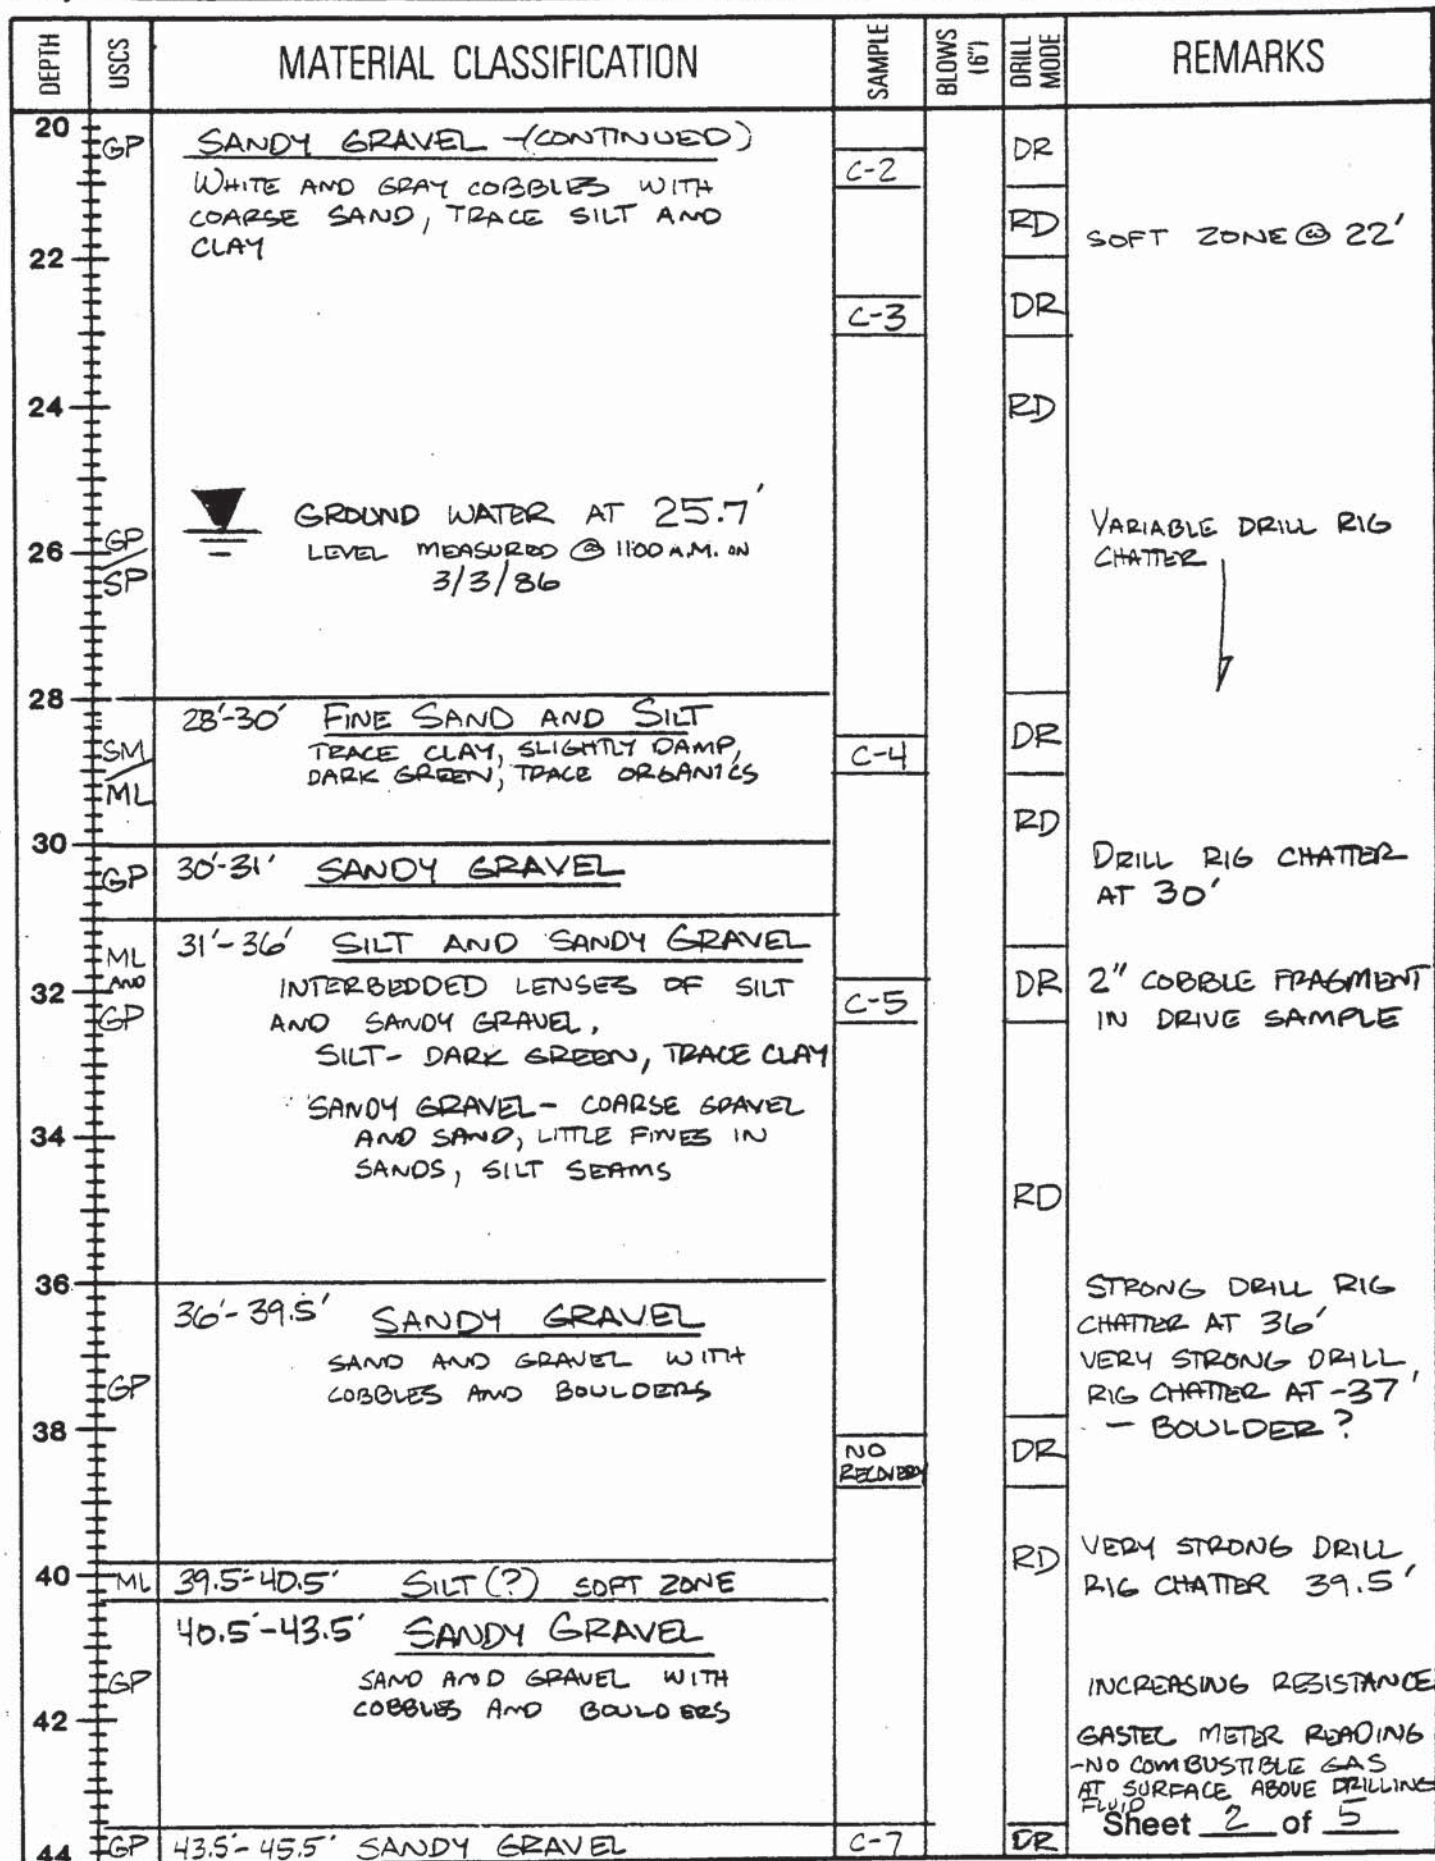 DEPTH
USCS
MATERIAL CLASSIFICATION
SAMPLE
BLOWS
(6")
DRILL
MODE
REMARKS
20
GP
SANDY GRAVEL -(CONTINUED)
DR
C-2
WHITE AND GRAY COBBLES WITH
COARSE SAND, TRACE SILT AND
CLAY
RD
SOFT ZONE @ 22'
22
C-3
DR
24
RD
GROUND WATER AT 25.7'
LEVEL MEASURED @ 11:00 A.M. ON
3/3/86
VARIABLE DRILL RIG
CHATTER
GP
26
SP
28
28'-30' FINE SAND AND SILT
TRACE CLAY, SLIGHTLY DAMP,
DARK GREEN, TRACE ORGANICS
SM
ML
C-4
DR
RD
30
GP
30'-31' SANDY GRAVEL
DRILL RIG CHATTER
AT 30'
31'-36' SILT AND SANDY GRAVEL
INTERBEDDED LENSES OF SILT
AND SANDY GRAVEL,
SILT- DARK GREEN, TRACE CLAY
SANDY GRAVEL- COARSE GRAVEL
AND SAND, LITTLE FINES IN
SANDS, SILT SEAMS
ML
AND
GP
32
C-5
DR
2" COBBLE FRAGMENT
IN DRIVE SAMPLE
34
RD
36
36'-39.5' SANDY GRAVEL
SAND AND GRAVEL WITH
COBBLES AND BOULDERS
GP
STRONG DRILL RIG
CHATTER AT 36'
VERY STRONG DRILL
RIG CHATTER AT -37'
- BOULDER?
38
NO
RECOVERY
DR
40
ML
39.5'-40.5' SILT(?) SOFT ZONE
RD
VERY STRONG DRILL
RIG CHATTER 39.5'
40.5'-43.5' SANDY GRAVEL
SAND AND GRAVEL WITH
COBBLES AND BOULDERS
GP
INCREASING RESISTANCE
42
GASTEC METER READING
-NO COMBUSTIBLE GAS
AT SURFACE ABOVE DRILLING
FLUID
Sheet 2 of 5
44
GP
43.5'-45.5' SANDY GRAVEL
C-7
DR